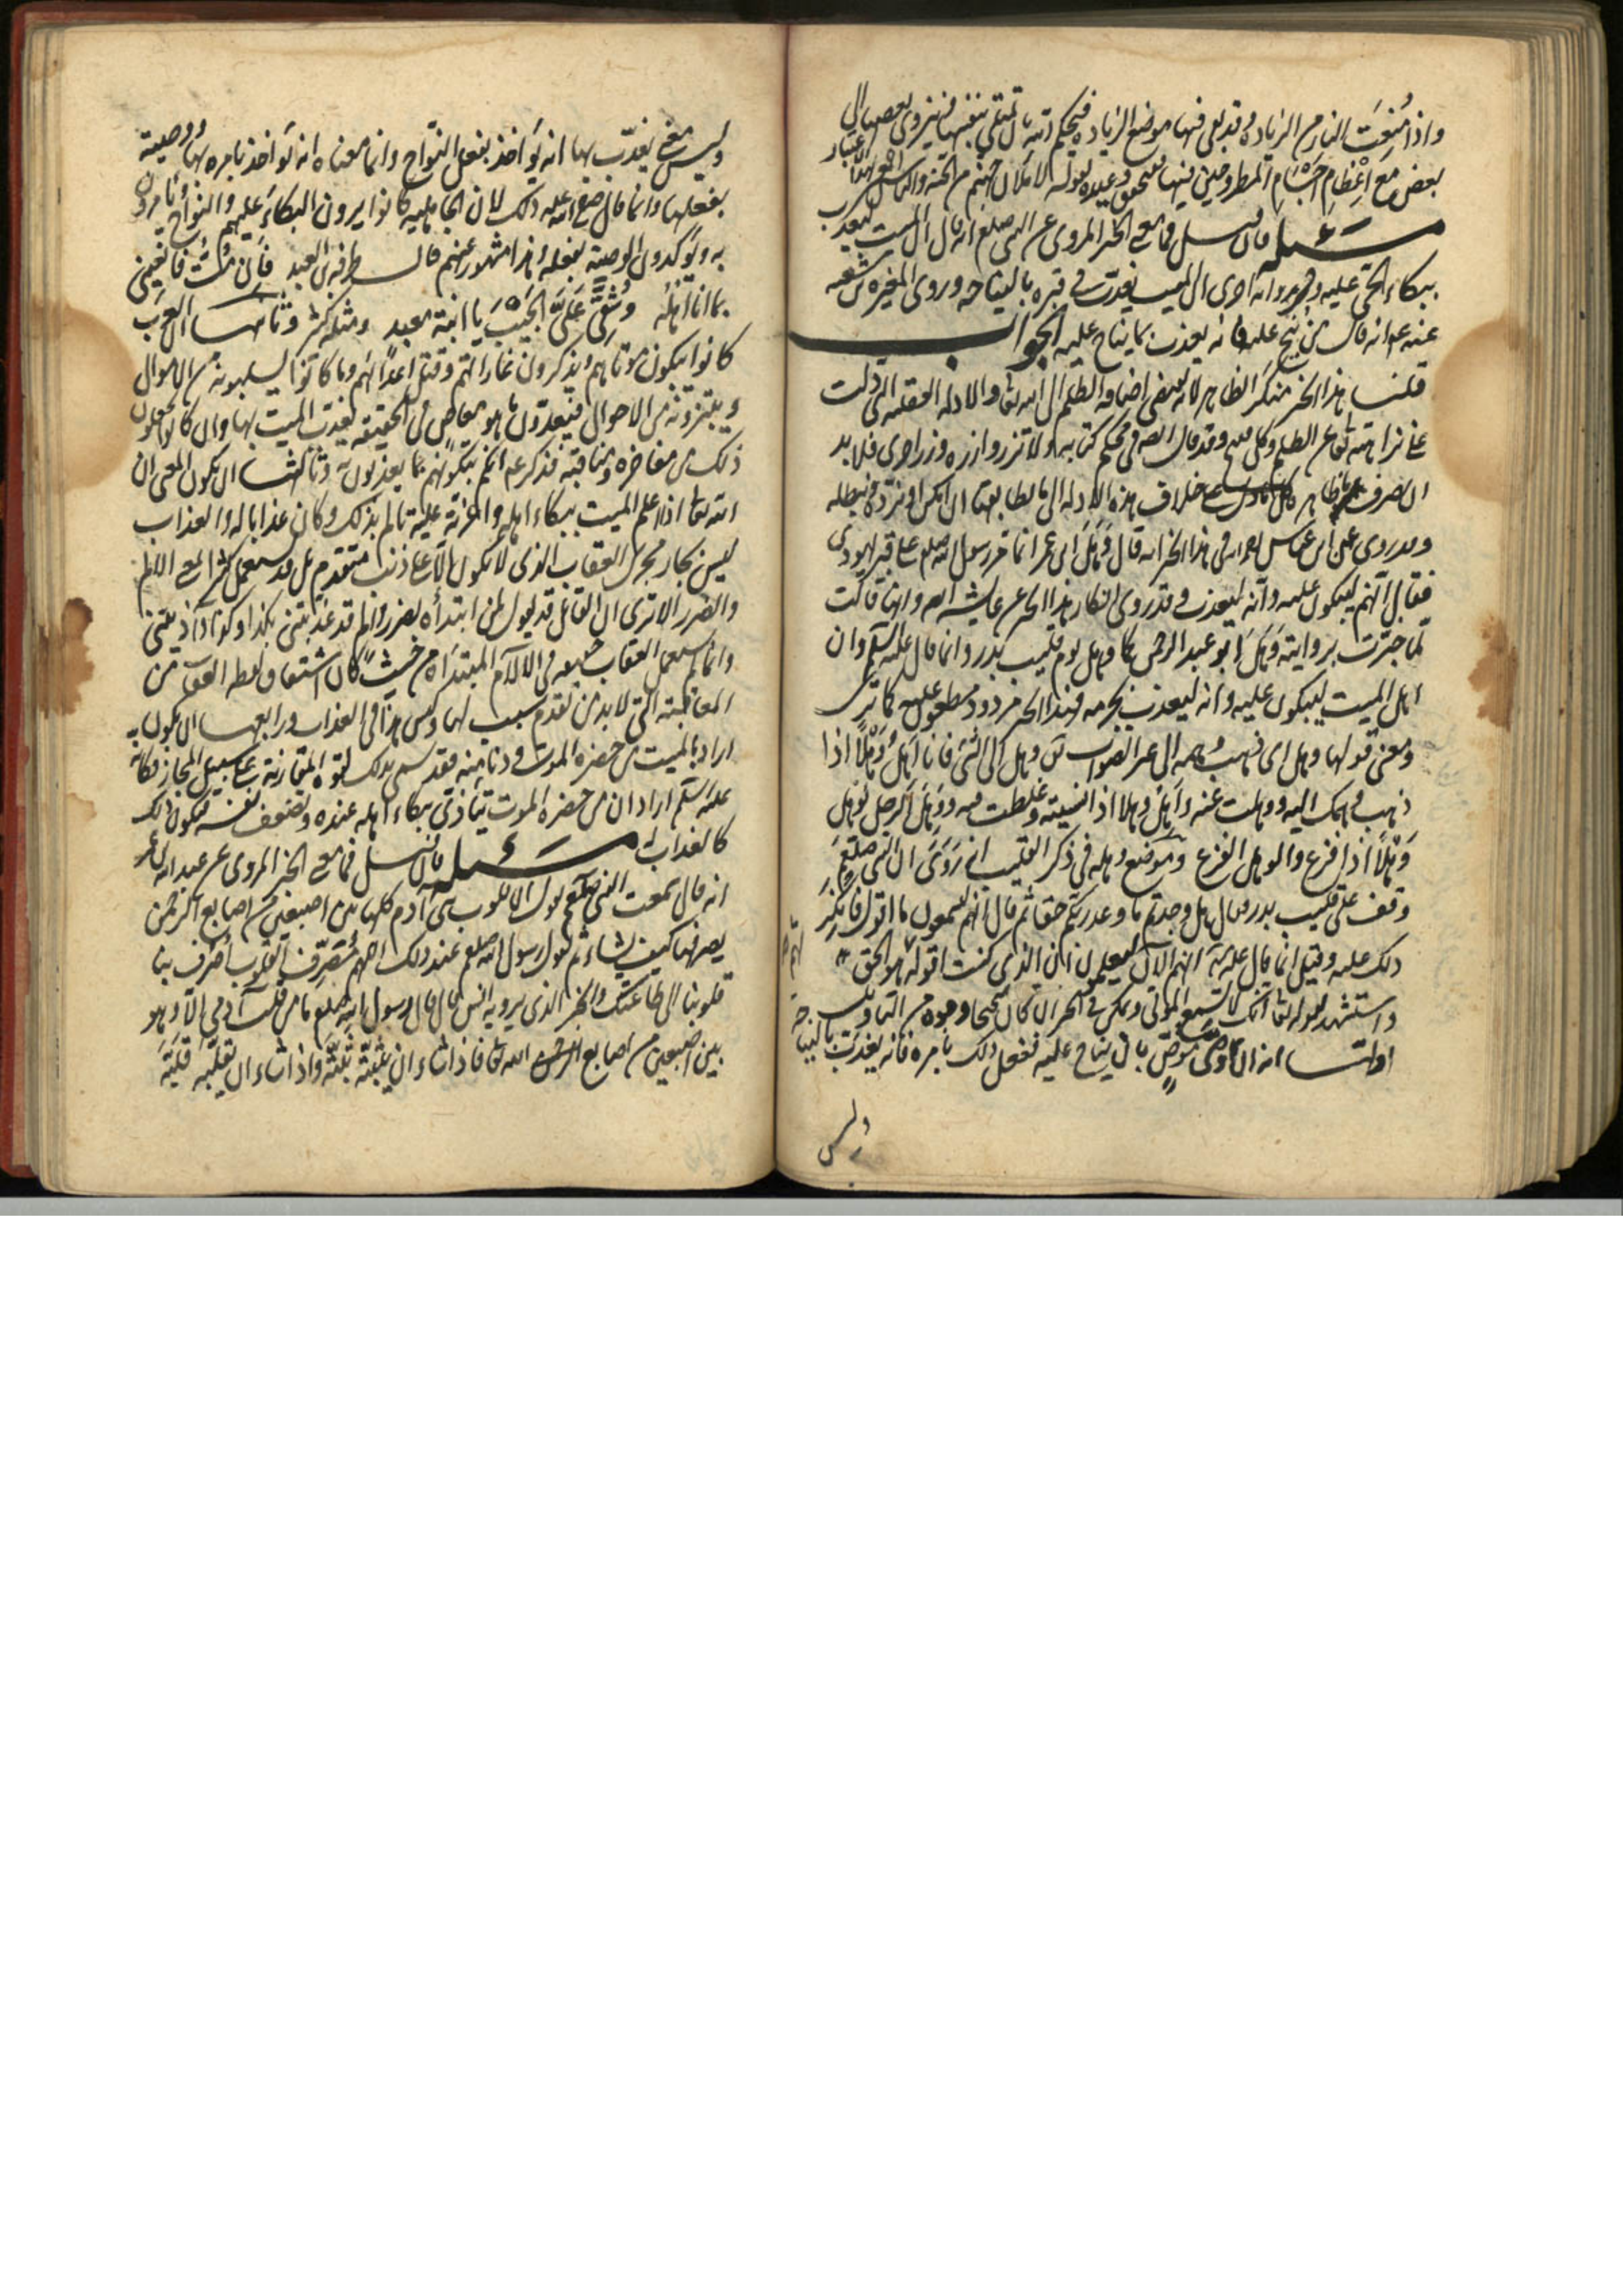 واذا منعت النار من الزيادة وقد بقى فيها موضع الزيادة فيحكم الله بان تمتلى بنفسها فينزوى بعضها الى
بعض مع اعظام اجسام المطروحين فيها ليحق وعيده لقوله لاملان جهنم من الجنة والناس اجمعين
مسئله فان سئل فما معنى الخبر المروى عن النبى صلعم انه قال ان الميت ليعذب
ببكاء الحى عليه وفى رواية اخرى ان الميت يعذب فى قبره بالنياحة وروى المغيرة بن شعبة
عنه عم انه قال من نيح عليه فانه يعذب بما يناح عليه الجواب
قلنا هذا الخبر منكر الظاهر لانه يقتضى اضافة الظلم الى الله تعا والادلة العقلية التى دلت
على نزاهته تعا عن الظلم وكل قبيح وقد قال الله فى محكم كتابه ولا تزر وازرة وزر اخرى فلا بد
ان نصرف ظاهر كل خلاف هذه الادلة الى ما يطابقها ان امكن او نرده ونبطله
وقد روى عن ابن عباس فى هذا الخبر انه قال وهل ابن عمر انما مر رسول الله صلعم على قبر يهودى
فقال انهم ليبكون عليه وانه ليعذب وقد روى انكار هذا الخبر عن عايشه ايضا وانها قالت
لما خبرت بروايته وهل ابو عبد الرحمن كما وهل يوم قليب بدر وانما قال عليه السلم وان
اهل الميت ليبكون عليه وانه ليعذب بجرمه فهذا الخبر مردود مطعون عليه كما ترى
ومعنى قولها وهل اى ذهب وهمه الى غير الصواب يق وهل الى الشئ فانا اهل وهلا اذا
ذهب وهمك اليه ووهلت عنه واهل وهلا اذا نسيته وغلطت فيه ووهل الرجل يوهل
وهلا اذا فزع والوهل الفزع وموضع وهله فى ذكر القليب انه روى ان النبى صلعم
وقف على قليب بدر وقال هل وجدتم ما وعد ربكم حقا ثم قال انهم ليسمعون ما اقول فانكر
ذلك عليه وقيل انما قال عليه انهم الان ليعلمون ان الذى كنت اقوله هو الحق
واستشهد بقوله تعا انك لا تسمع الموتى ويمكن فى الخبر ان كان صحيحا وجوه من التاويل
اولها انه ان اوصى موص بان يناح عليه ففعل ذلك بامره فانه يعذب بالنياحة
وليس
وليس معنى يعذب بها انه يؤاخذ بفعل النواح وانما معناه انه يؤاخذ بامره بها ووصيته
بفعلها وانما قال صلى الله عليه ذلك لان الجاهلية كانوا يرون البكاء عليهم والنواح ويامرون
به ويؤكدون الوصية بفعله وهذا مشهور عنهم قال طرفة بن العبد فان مت فانعينى
بما انا اهله وشقى على الجيب يا ابنة معبد ومثله كثير وثانيها ان العرب
كانوا يبكون موتاهم ويذكرون غاراتهم وقتل اعدائهم وما كانوا يسلبونه من الاموال
ويبتزونه من الاحوال فيعدون ما هو معاص فى الحقيقة يعذب الميت بها وان كانوا يجعلون
ذلك من مفاخره ومناقبه فذكر عم انكم تبكونهم بما يعذبون به وثالثها ان يكون المعنى ان
الله تعا اذا اعلم الميت ببكاء اهله واعزته عليه تالم بذلك وكان عذابا له والعذاب
ليس بجار مجرى العقاب الذى لا يكون الا على ذنب متقدم بل قد يستعمل كثيرا بمعنى الالم
والضرر الا ترى ان القائل قد يقول لمن ابتدأه بضرر والم قد عذبتنى بكذا وكذا واذيتنى
وانما لم يستعمل العقاب حقيقة فى الالام المبتدأة من حيث كان اشتقاق لفظه العقاب من
المعاقبة التى لا بد من تقدم سبب لها وليس هذا فى العذاب ورابعها ان يكون
اراد بالميت من حضره الموت ودنا منه فقد سمى بذلك لقوة المقاربة على سبيل المجاز فكانه
عليه السلم اراد ان من حضره الموت يتاذى ببكاء اهله عنده وتضعف نفسه فيكون ذلك
كالعذاب له مسئله فان سئل فما معنى الخبر المروى عن عبد الله بن عمر
انه قال سمعت النبى صلعم يقول ان قلوب بنى آدم كلها بين اصبعين من اصابع الرحمن
يصرفها كيف يشاء ثم يقول رسول الله صلعم عند ذلك اللهم مصرف القلوب اصرف بنا
قلوبنا الى طاعتك والخبر الذى يرويه انس قال قال رسول الله صلعم ما من قلب آدمى الا وهو
بين اصبعين من اصابع الله تعا فاذا شاء ان يثبته ثبته واذا شاء ان يقلبه قلبه